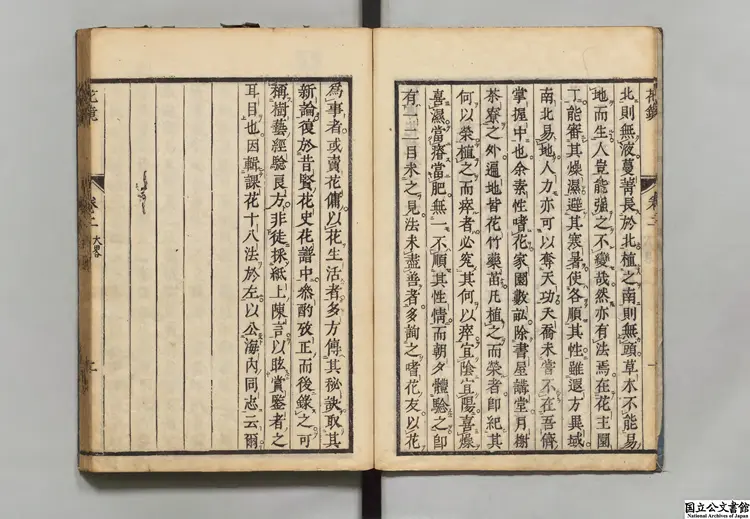 北則無液蔓菁長於北植之南則無頭草木不能易
地而生人豈能強之不變哉然亦有法焉在花主園
丁能審其燥濕避其寒暑使各順其性雖遐方異域
南北易地人力亦可以奪天功夭喬未嘗不在吾儕
掌握中也余素性嗜花家園數畝除書屋講堂月榭
茶寮之外遍地皆花竹藥苗凡植之而榮者即紀其
何以榮植之而瘁者必究其何以瘁宜陰宜陽喜燥
喜濕當瘠當肥無一不順其性情而朝夕體驗之即
有一二目未之見法未盡善者多詢之嗜花友以花
為事者或賣花傭以花生活者多方傳其秘訣取其
新論復於昔賢花史花譜中參酌攷正而後錄之可
稱樹藝經驗良方非徒採紙上陳言以眩賞鑒者之
耳目也因輯課花十八法於左以公海內同志云爾
花鏡
卷二
大畧
国立公文書館
National Archives of Japan